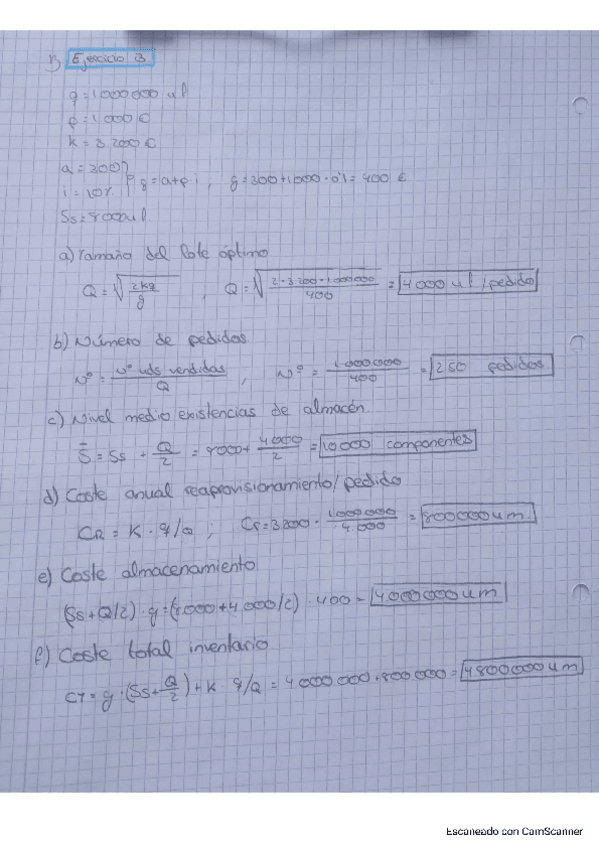 1) Ejercicio 3
q = 1000000 uf
p = 1.000 €
k = 3.200 €
a = 300
i = 10% } g = a+p i , g = 300+1.000·0'1 = 400 €
Ss = 8000 uf
a) Tamaño del lote óptimo
Q = √2kq/g , Q = √2·3.200·1.000000/400 = 4000 uf/pedido
b) Número de pedidos
Nº = nº uds vendidas/Q , Nº = 1.000000/400 = 250 pedidos
c) Nivel medio existencias de almacén
S̄ = Ss + Q/2 = 8000+ 4.000/2 = 10.000 componentes
d) Coste anual reaprovisionamiento/pedido
CR = K · q/Q ; = 3200 · 1.000000/4.000 = 800000 um.
e) Coste almacenamiento
(Ss+Q/2)·g = (8.000+4.000/2) · 400 = 4000000 um
f) Coste total inventario
CT = g·(Ss+Q/2)+K q/Q = 4000000+800000 = 4800000 um
Escaneado con CamScanner